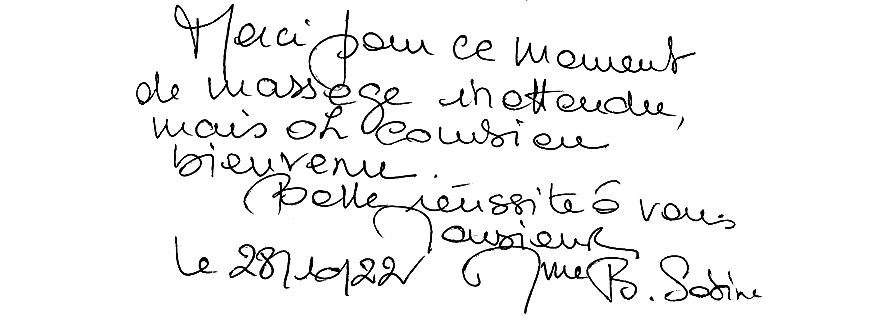 Merci pour ce moment
de massage inattendu,
mais oh combien
bienvenu.
Belle réussite à vous
Monsieur
le 28/10/22 Mme B. Sabine